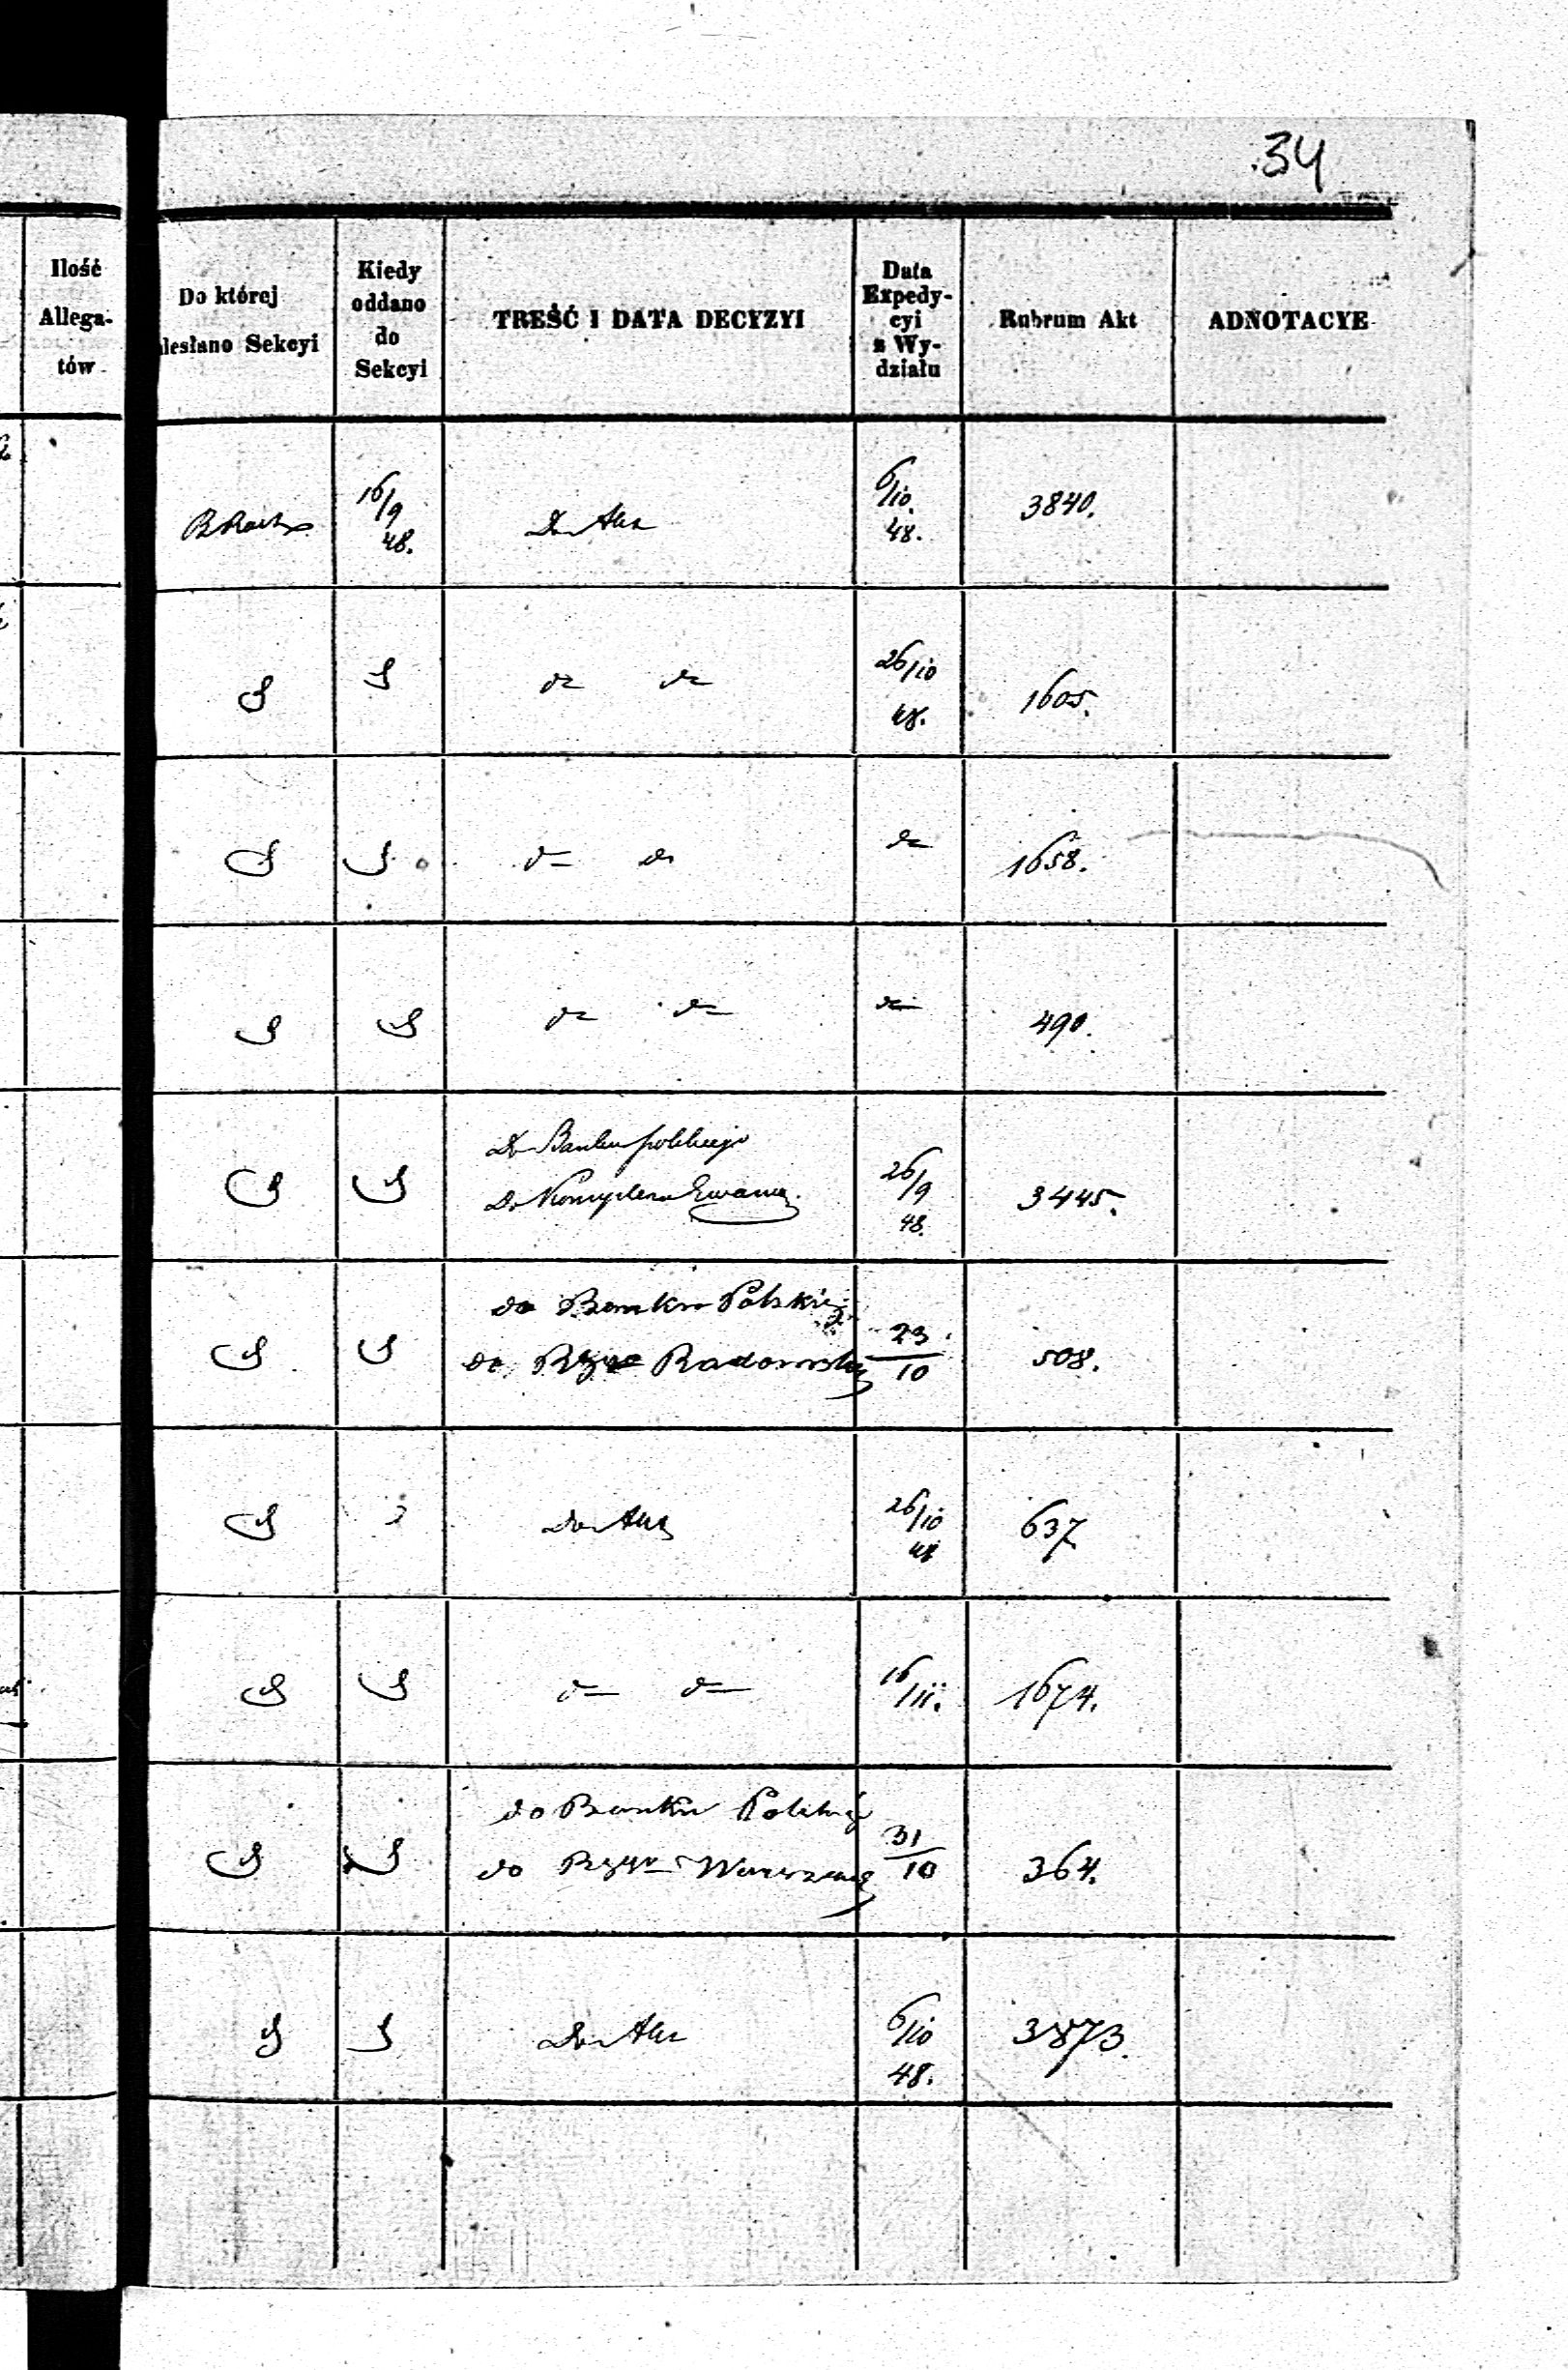 34
Ilość
Allega-
tów
Do której
desłano Sekcyi
Kiedy
oddano
do
Sekcyi
TREŚĆ I DATA DECYZYI
Data
Expedy-
cyi
z Wy-
działu
Rubrum Akt
ADNOTACYE
16/9
48.
Do Akt
6/10.
48.
3840.
do do
26/10
48.
1605.
do do
do
1658.
do do
do
490.
Do Banku polskiego
Do
26/9
48.
3445.
do Banku Polskieg
do Rządu Radomsk
23
10
508.
Do Akt
26/10
48
637
do do
16/11.
1674.
do Banku Polskieg
do Rządu Warszaws
31
10
364.
Do Akt
6/10
48.
3873.